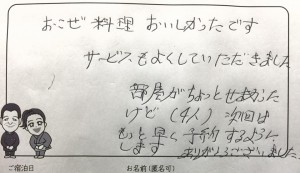 おこぜ料理 おいしかったです
サービスもよくしていただきました
部屋がちょっとせまかった
けど(4人)次回は
もっと早く予約するように
します
ありがとうございました。
ご宿泊日
お名前(匿名可)